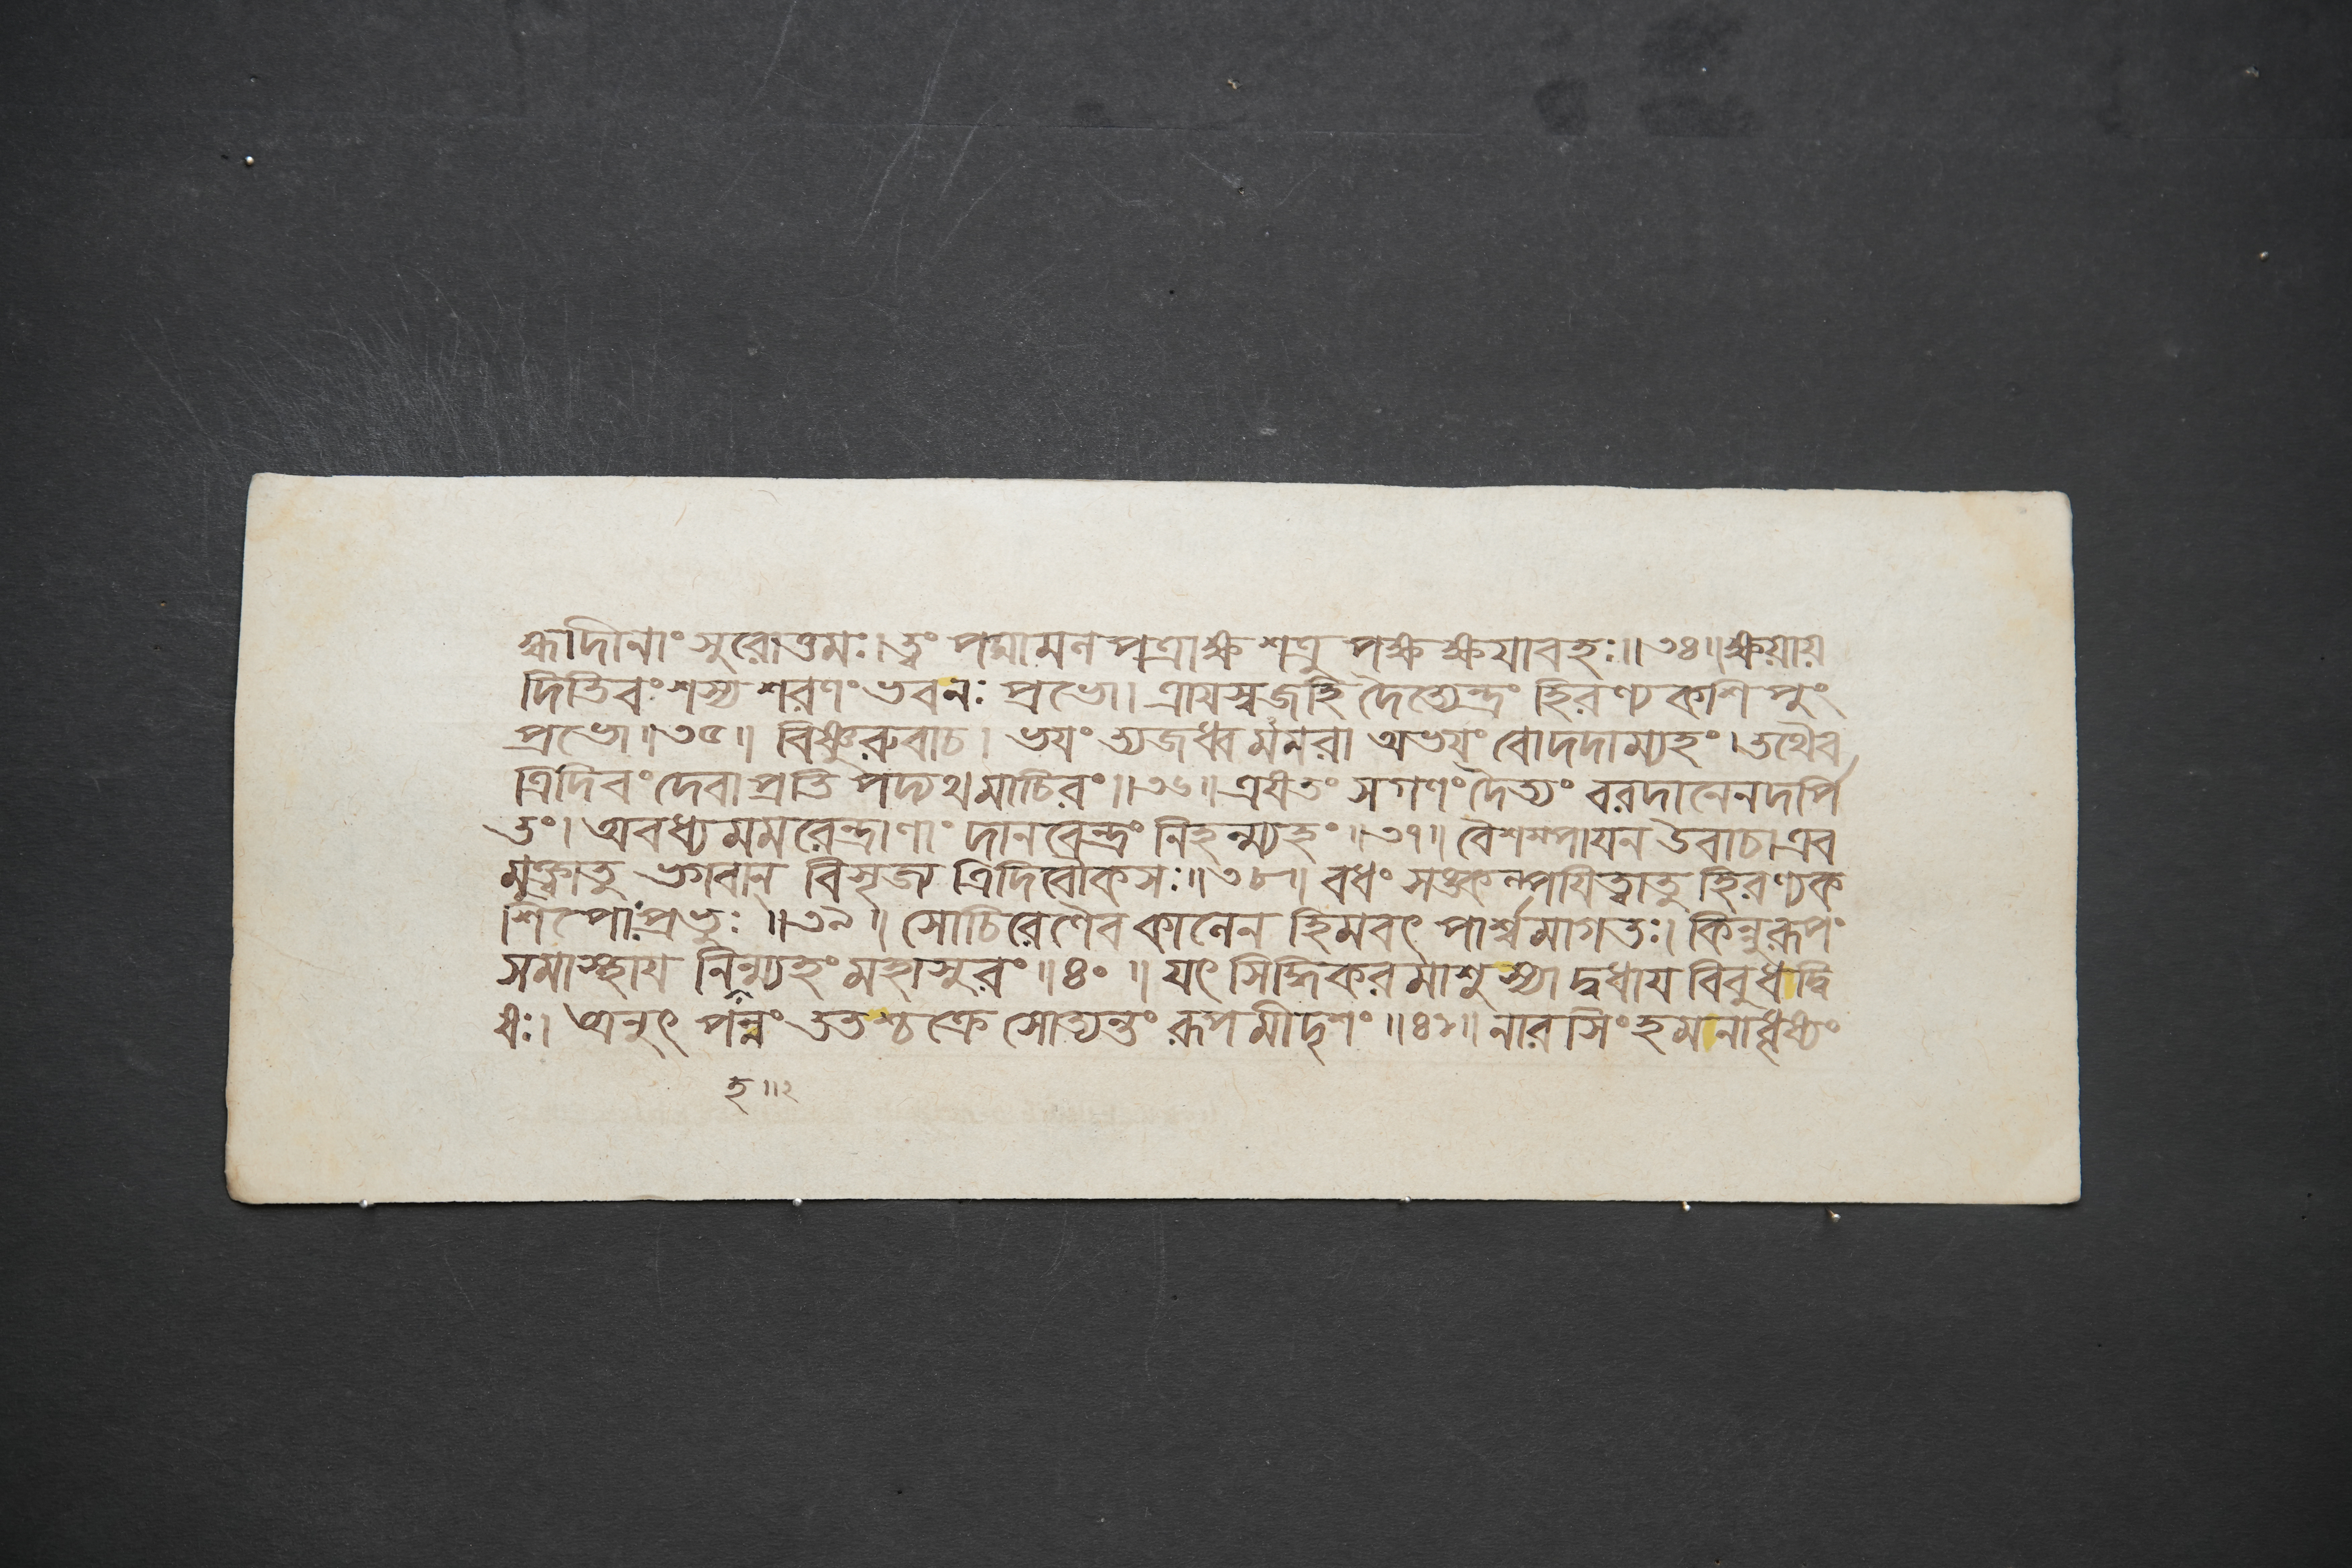 হ্মাদীনাং সুরোত্তমঃ।ত্বং পদ্মামলপত্রাক্ষ শত্রু পক্ষ ক্ষযাবহঃ॥৩৪॥ক্ষয়ায়
দিতিবংশস্য শরণং ভবনঃ প্রভো। ত্রাযস্বজহি দৈত্যেন্দ্রং হিরণ্যকশিপুং
প্রভো॥৩৫॥ বিষ্ণুরুবাচ। ভযং ত্যজধ্বমমরা অভযং বোদদাম্যহং।তথৈব
ত্রিদিবং দেবা প্রতি পদ্যথমাচিরং॥৩৬॥ এষতং সগণং দৈত্যং বরদানেনদর্পি
তং। অবধ্যমমরেন্দ্রাণাং দানবেন্দ্রং নিহন্ম্যহং॥৩৭॥ বৈশম্পাযন উবাচ।এব
মুক্ত্বাতু ভগবান বিসৃজ্য ত্রিদিবৌকসঃ॥৩৮॥ বধং সঙ্কল্পযিত্বাতু হিরণ্যক
শিপোঃপ্রভুঃ॥৩৯॥ সোচিরেণৈব কালেন হিমবৎ পার্শ্বমাগতঃ। কিন্নুরূপং
সমাস্থায নিন্ম্যহং মহাসুরং॥৪০॥ যৎ সিদ্ধিকরমাশুস্যাদ্বধায বিবুধদ্বি
ষঃ। অনুৎ পন্নং ততশ্চক্রে সোত্যন্তং রূপমীদৃশং॥৪১॥ নারসিংহমনাধৃষ্যং
হ॥২